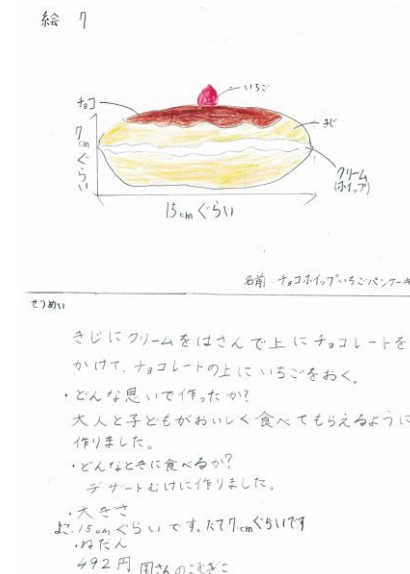 絵 7
いちご
チョコ
きじ
7cmぐらい
クリーム
(ホイップ)
15cmぐらい
名前 チョコホイップいちごパンケーキ
せつめい
きじにクリームをはさんで上にチョコレートを
かけて、チョコレートの上にいちごをおく。
・どんな思いで作ったか?
大人と子どもがおいしく食べてもらえるように
作りました。
・どんなときに食べるか?
デザートむけに作りました。
・大きさ
よこ15cmぐらいです。たて7cmぐらいです
・ねだん
492円 国さんのこむぎこ